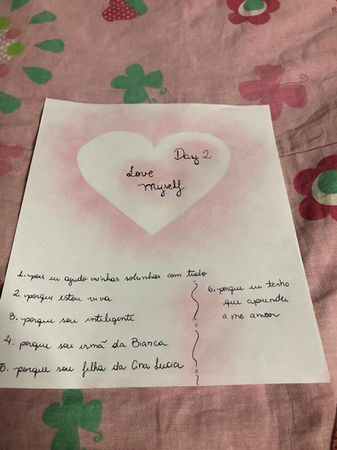 Day 2
Love
Myself
1. pois eu ajudo minhas sobrinhas com tudo
2. porque estou viva
3. porque sou inteligente
4. porque sou irmã da Bianca
5. porque sou filha da Ana Lucia
6. porque eu tenho
que aprender
a me amar